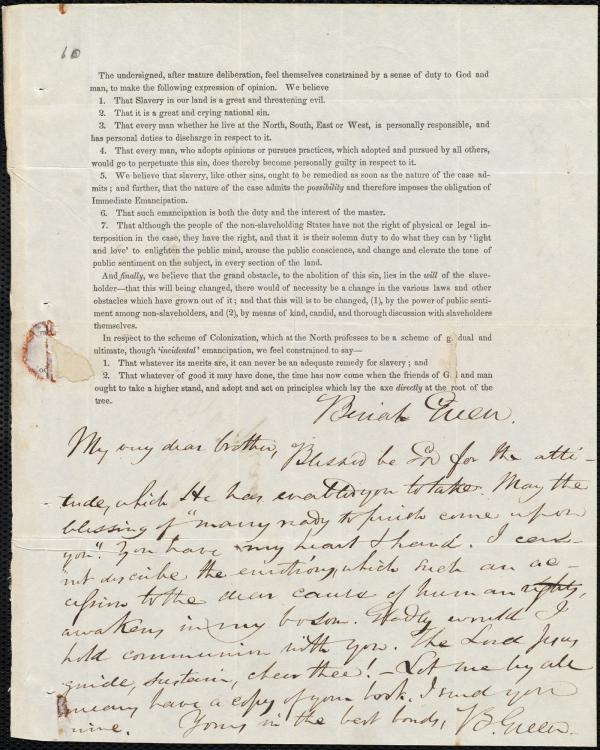 60
The undersigned, after mature deliberation, feel themselves constrained by a sense of duty to God and
man, to make the following expression of opinion. We believe
1. That Slavery in our land is a great and threatening evil.
2. That it is a great and crying national sin.
3. That every man whether he live at the North, South, East or West, is personally responsible, and
has personal duties to discharge in respect to it.
4. That every man, who adopts opinions or pursues practices, which adopted and pursued by all others,
would go to perpetuate this sin, does thereby become personally guilty in respect to it.
5. We believe that slavery, like other sins, ought to be remedied as soon as the nature of the case ad-
mits; and further, that the nature of the case admits the possibility and therefore imposes the obligation of
Immediate Emancipation.
6. That such emancipation is both the duty and the interest of the master.
7. That although the people of the non-slaveholding States have not the right of physical or legal in-
terposition in the case, they have the right, and that it is their solemn duty to do what they can by 'light
and love' to enlighten the public mind, arouse the public conscience, and change and elevate the tone of
public sentiment on the subject, in every section of the land.
And finally, we believe that the grand obstacle, to the abolition of this sin, lies in the will of the slave-
holder—that this will being changed, there would of necessity be a change in the various laws and other
obstacles which have grown out of it; and that this will is to be changed, (1), by the power of public senti-
ment among non-slaveholders, and (2), by means of kind, candid, and thorough discussion with slaveholders
themselves.
In respect to the scheme of Colonization, which at the North professes to be a scheme of g dual and
ultimate, though 'incidental' emancipation, we feel constrained to say—
1. That whatever its merits are, it can never be an adequate remedy for slavery; and
2. That whatever of good it may have done, the time has now come when the friends of G and man
ought to take a higher stand, and adopt and act on principles which lay the axe directly at the root of the
tree.
Beriah Green.
My very dear brother, Blessed be God for the atti-
tude, which He has enabled you to take. May the
blessing of "many ready to perish come upon
you". You have my heart & hand. I can-
not describe the emotions, which such an ac-
cession to the dear cause of human rights,
awakens in my bosom. Gladly would I
hold communion with you. The Lord Jesus
guide, sustain, cheer thee! – Let me by all
means have a copy of your book. I send you
mine. Yours in the best bonds, B. Green.